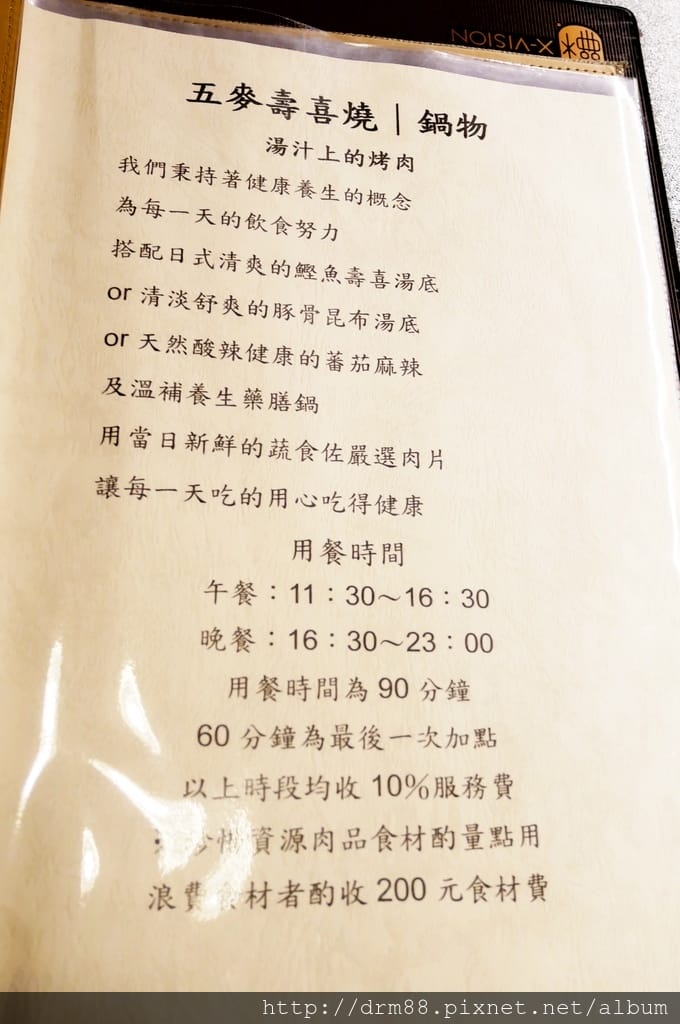 X-VISION
五麥壽喜燒｜鍋物
湯汁上的烤肉
我們秉持著健康養生的概念
為每一天的飲食努力
搭配日式清爽的鰹魚壽喜湯底
or 清淡舒爽的豚骨昆布湯底
or 天然酸辣健康的蕃茄麻辣
及溫補養生藥膳鍋
用當日新鮮的蔬食佐嚴選肉片
讓每一天吃的用心吃得健康
用餐時間
午餐：11：30～16：30
晚餐：16：30～23：00
用餐時間為 90 分鐘
60 分鐘為最後一次加點
以上時段均收 10%服務費
珍惜資源肉品食材酌量點用
浪費食材者酌收 200 元食材費
http://drm88.pixnet.net/album